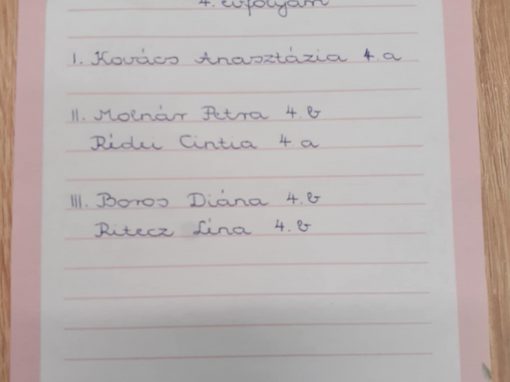 4. évfolyam
I. Kovács Anasztázia 4. a
II. Molnár Petra 4. b
Rédei Cintia 4 a
III. Boros Diána 4. b
Ritecz Lina 4. b